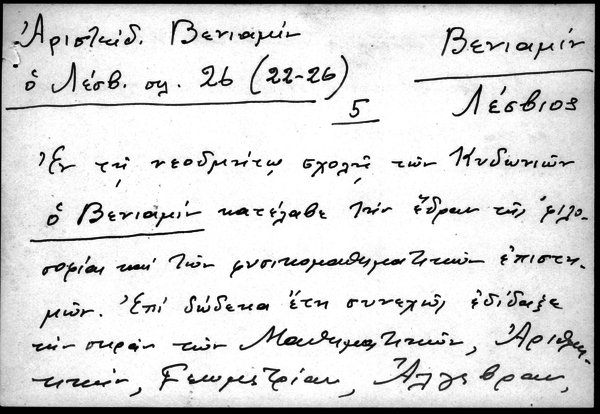 Ἀριστείδ. Βενιαμίν
ὁ Λέσβ. σελ. 26 (22-26)
Βενιαμίν
Λέσβιος
5
Ἐν τῇ νεοδμήτῳ σχολῇ τῶν Κυδωνιῶν
ὁ Βενιαμίν κατέλαβε τήν ἕδραν τῆς φιλο-
σοφίας καί τῶν φυσικομαθηματικῶν ἐπιστη-
μῶν. Ἐπί δώδεκα ἔτη συνεχῶς ἐδίδαξε
τήν σειράν τῶν Μαθηματικῶν, Ἀριθμη-
τικήν, Γεωμετρίαν, Ἄλγεβραν,